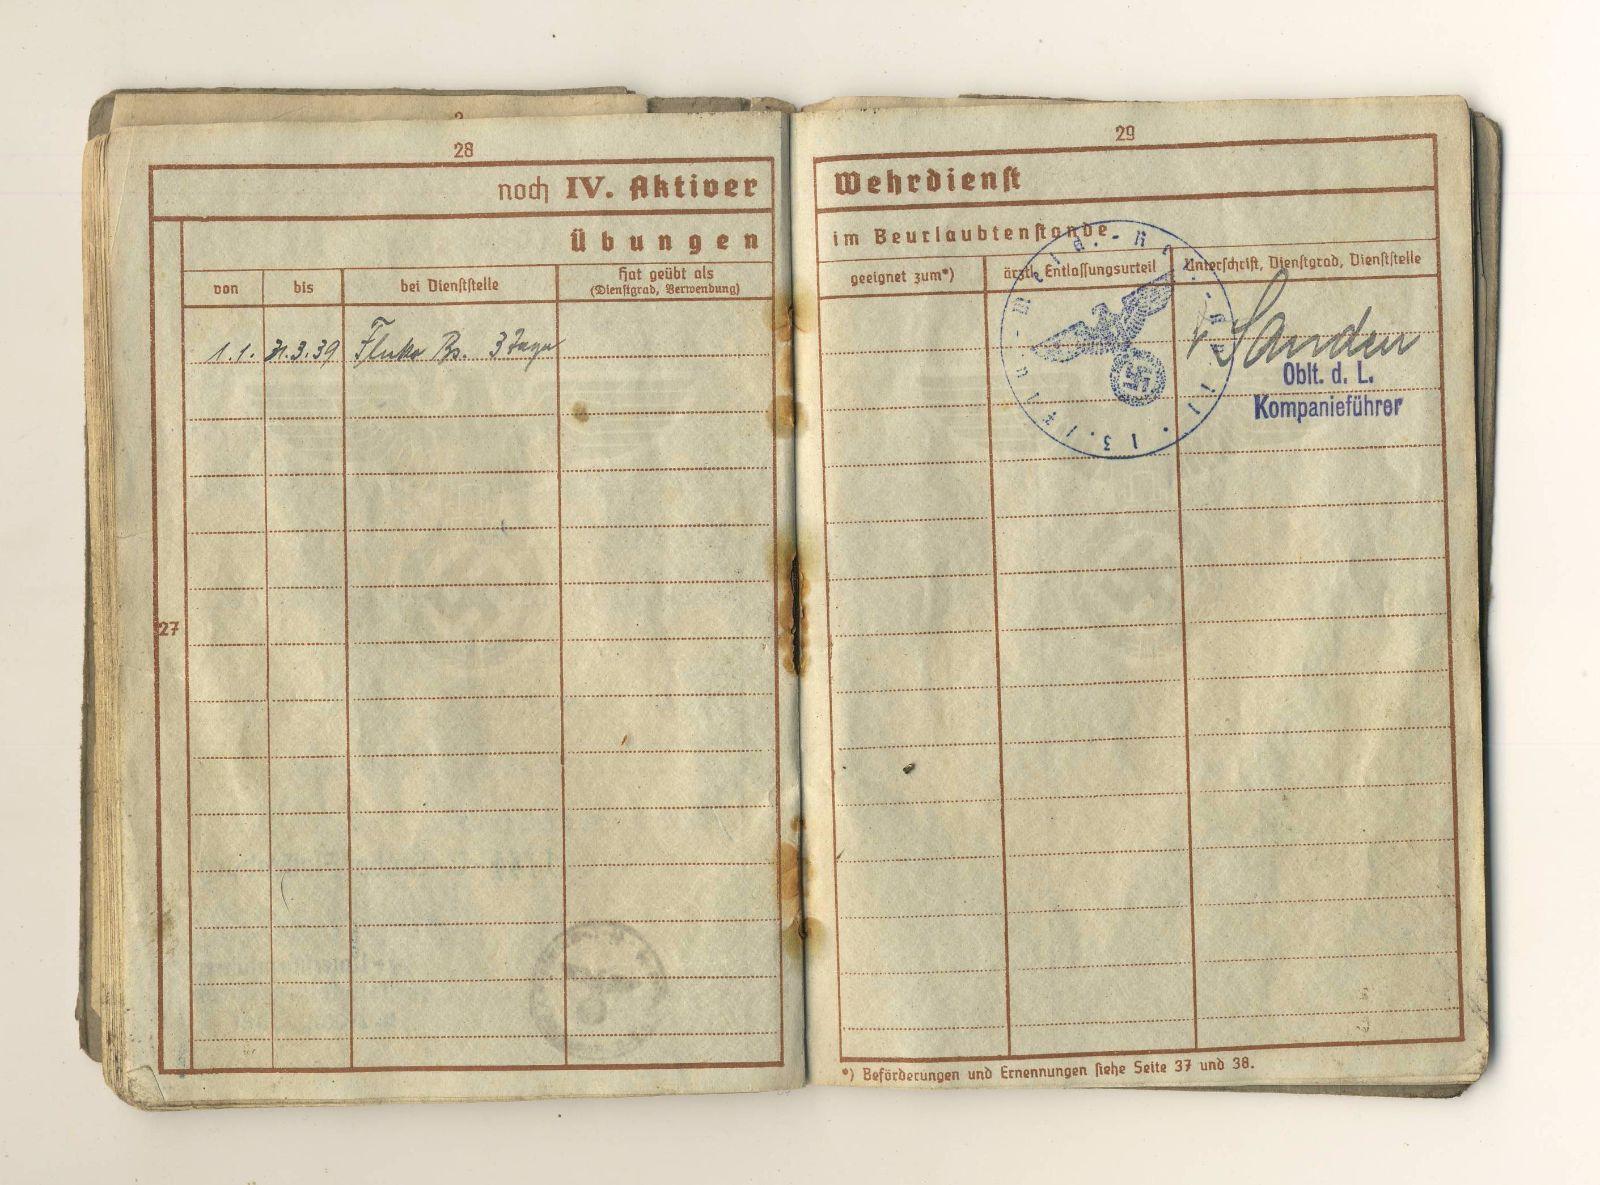 28
noch IV. Aktiver
Übungen
von
bis
bei Dienststelle
Hat geübt als
(Dienstgrad, Verwendung)
1.1. 31.3.39 Fluko Bs. 3 Tage
27
29
Wehrdienst
im Beurlaubtenstande
geeignet zum*)
ärztl. Entlassungsurteil
Unterschrift, Dienstgrad, Dienststelle
v Sanden
Oblt. d. L.
Kompanieführer
*) Beförderungen und Ernennungen siehe Seite 37 und 38.